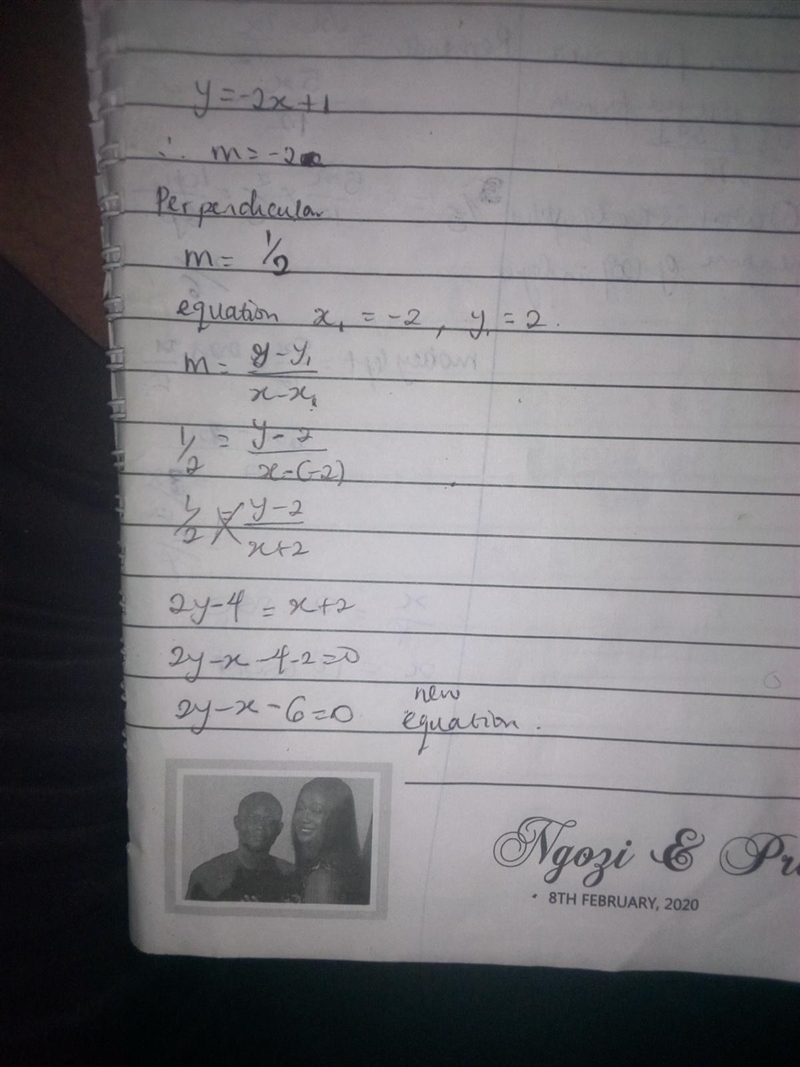 y = -2x+1
∴ m = -2
Perpendicular
m = 1/2
equation x₁ = -2, y₁ = 2.
m = y - y₁
x - x₁
1/2 = y - 2
x - (-2)
1/2 = y - 2
x+2
2y - 4 = x+2
2y - x - 4 - 2 = 0
2y - x - 6 = 0 new equation.
Ngozi &
8TH FEBRUARY, 2020